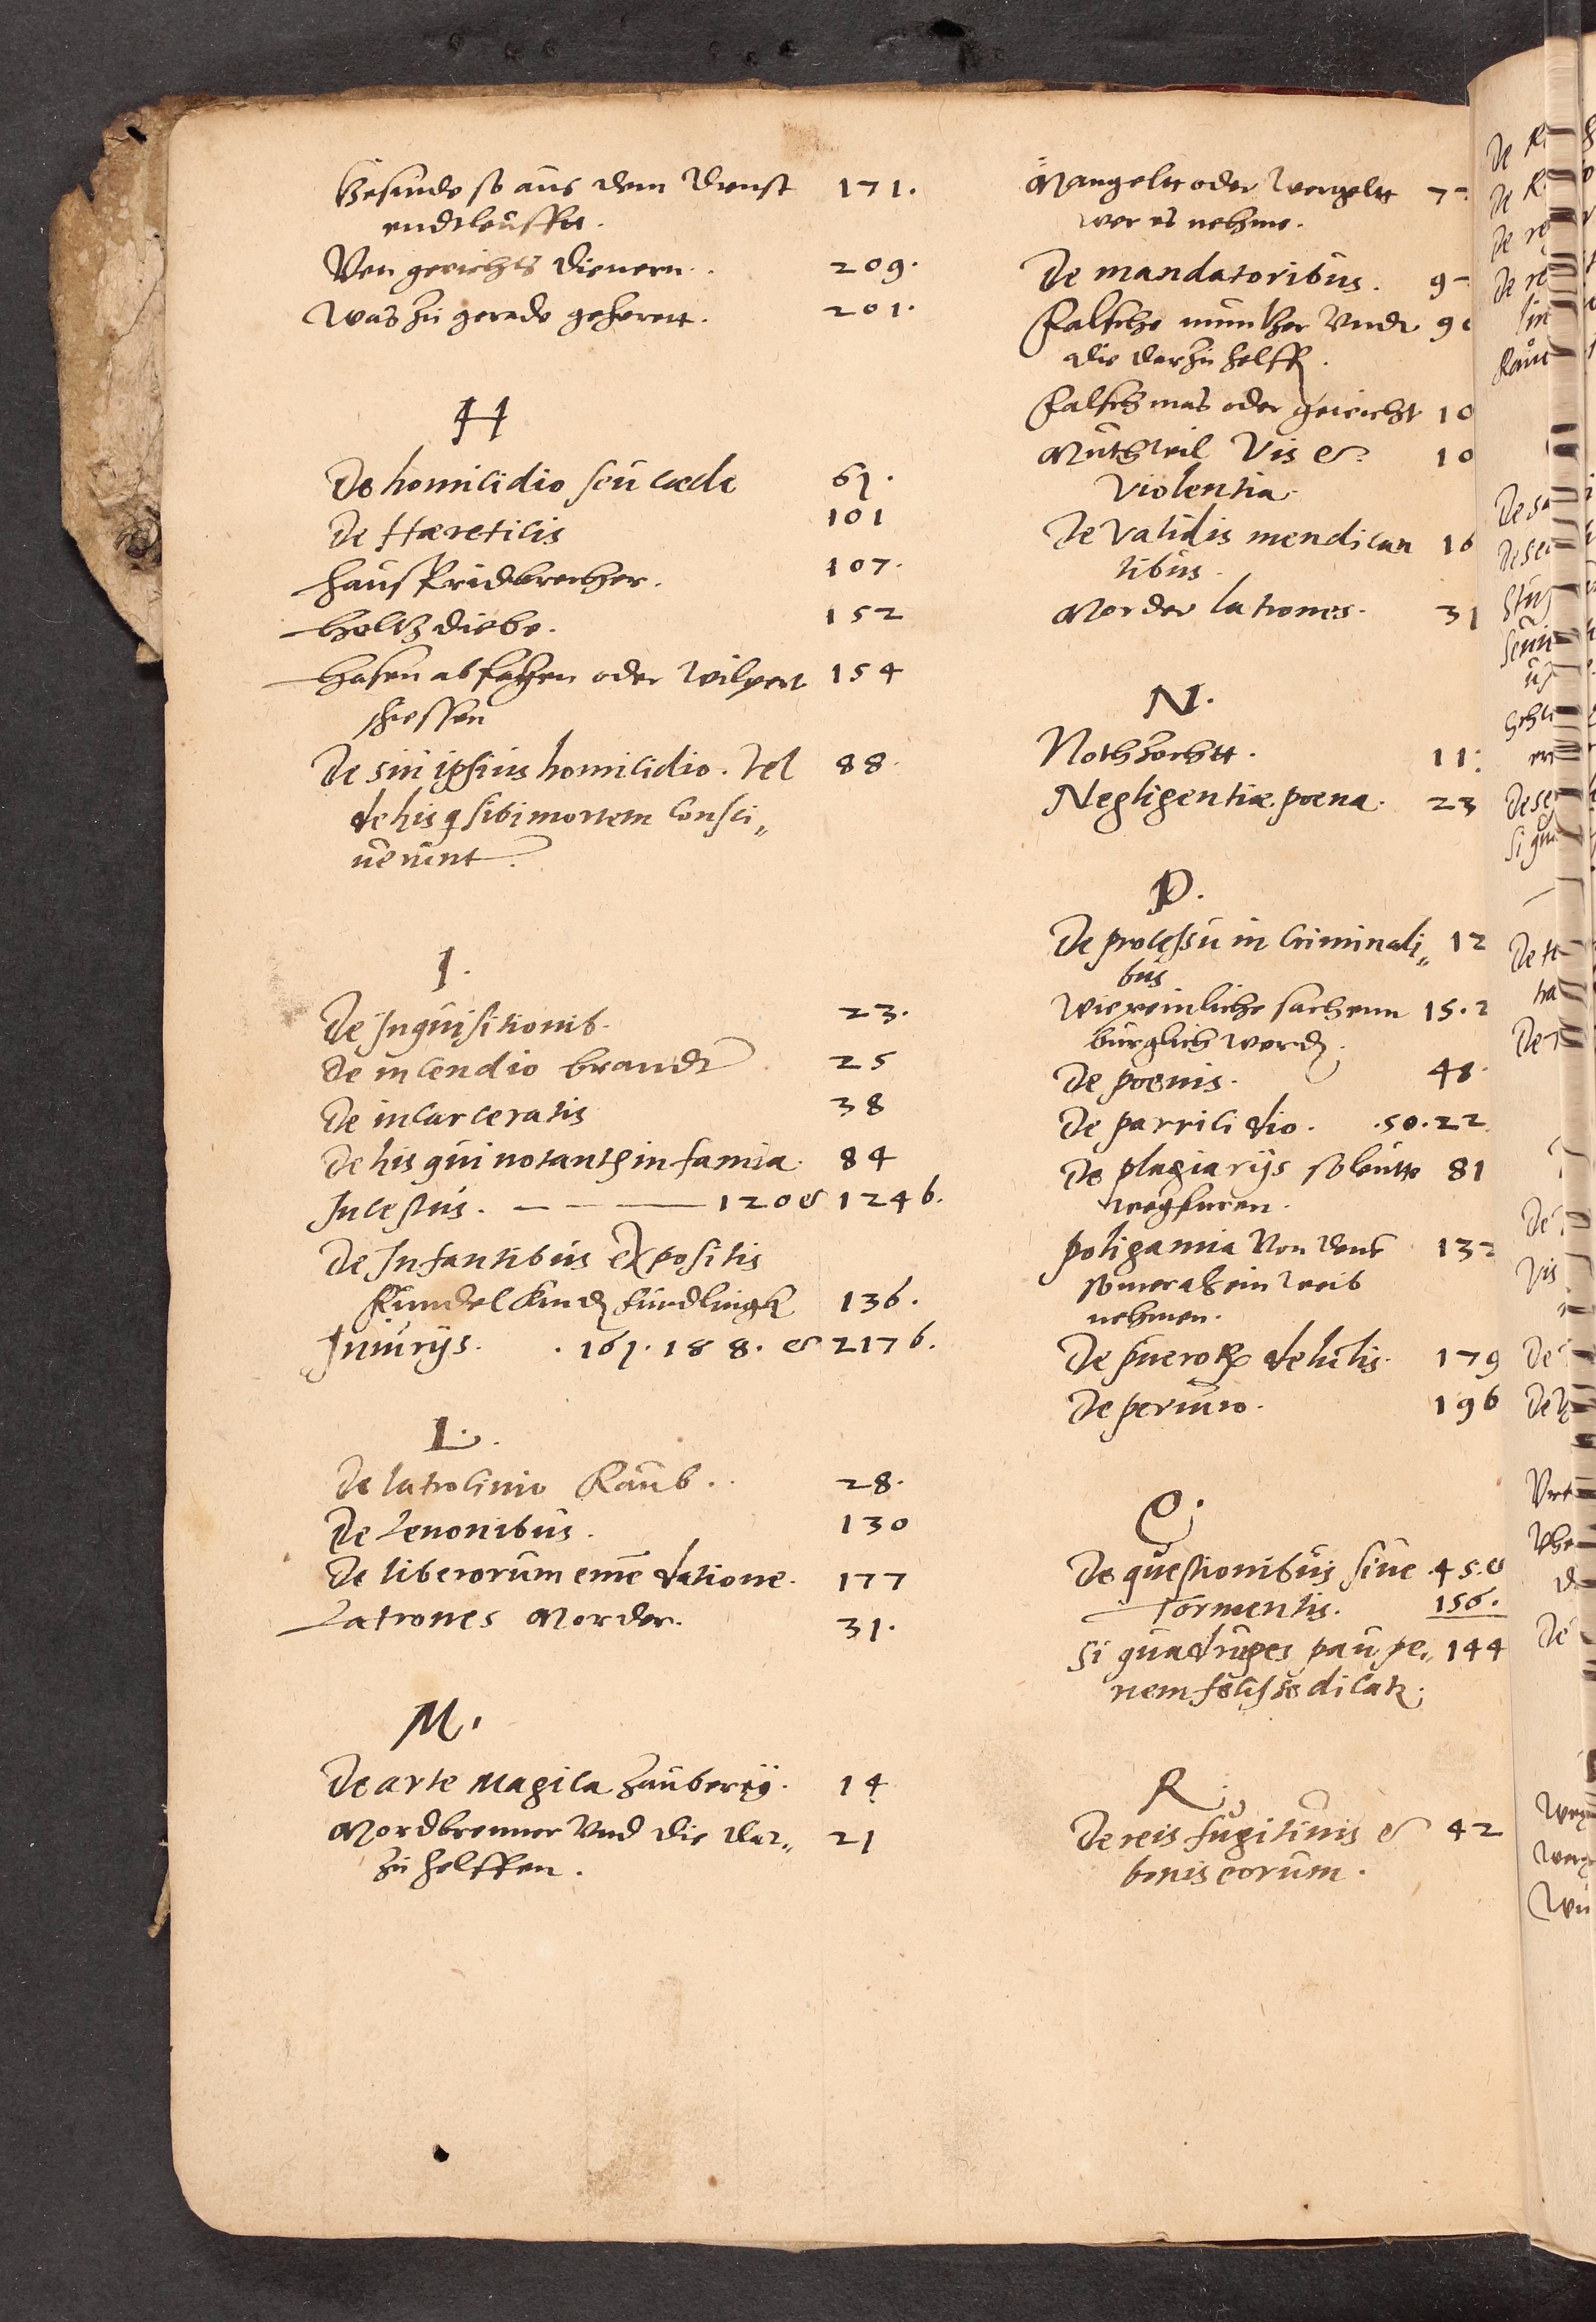 Gesinde so aus dem dienst 171.
endtleufft.
Von gerichts dienern. 209.
Was zu gerade gehorett. 201.
H
De homicidio seu caede 61.
De Haereticis 101
Hausfridbrecher. 107.
Holtz diebe. 152
Hasen abfahen oder Wilpert 154
schiessen
De sui ipsius homicidio. Vel 88.
de his q sibi mortem consci„
uerunt.
I.
De Inquisitionib. 23.
De incendio brandt 25
De incarceratis 38
De his qui notantur infamia. 84
Incestus. 120 & 124 b.
De Infantibus expositis
Fundel Kind fundlingk 136.
Iniurijs. . 161. 188. & 217 b.
L.
De latrocinio Raub. 28.
De Lenonibus. 130
De liberorum emedatione. 177
Latrones Morder. 31.
M.
De arte Magica Zauberey. 14
Mordbrenner Vnd die dar„ 21
zu helffen.
Mangeltt oder Wergeltt 7
wer es nehme.
De mandatoribus. 9
Falsche muntzer Vnd 9
die darzu helff.
Falsch mas oder gewicht 10
Muthwil Vis & 10
Violentia.
De Validis mendican 16
tibus.
Morder latrones. 31
N.
Nothzocht. 11
Negligentiae poena. 23
P.
De processu in Criminali„ 12
bus
Wie peinliche sachenn 15. 2
burglich werd.
De poenis. 48.
De parricidio. .50. 22
De plagiarijs so leutte 81
wegfuren.
poligamia Von denen 13
so mer als ein weib
nehmen.
De puerorum delictis. 179
De periurio. 196
Q.
De questionibus siue 45. &
Tormentis. 156.
Si quadrupes paupe„ 144
riem fecisse dicatr.
R.
De reis fugitiuis & 42
bonis eorum.